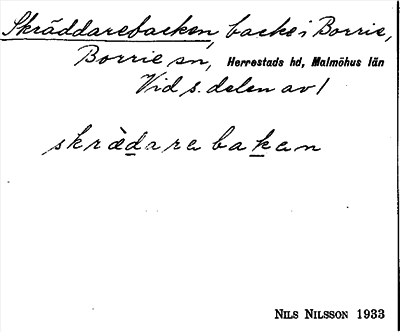 Skräddarebacken, backe i Borrie,
Borrie sn, Herrestads hd, Malmöhus län
Vid s. delen av 1
skrädara bakan
NILS NILSSON 1933